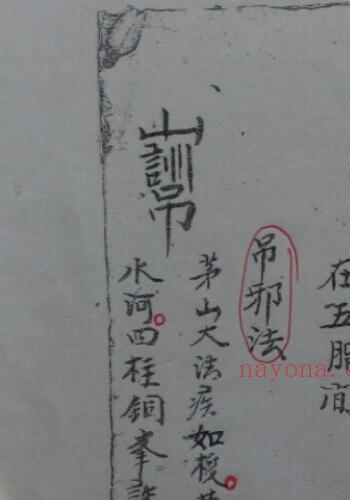 在五
吊邪法
茅山大法疾如梭。
水河。四柱銅峯
山訓吊
nayona.c